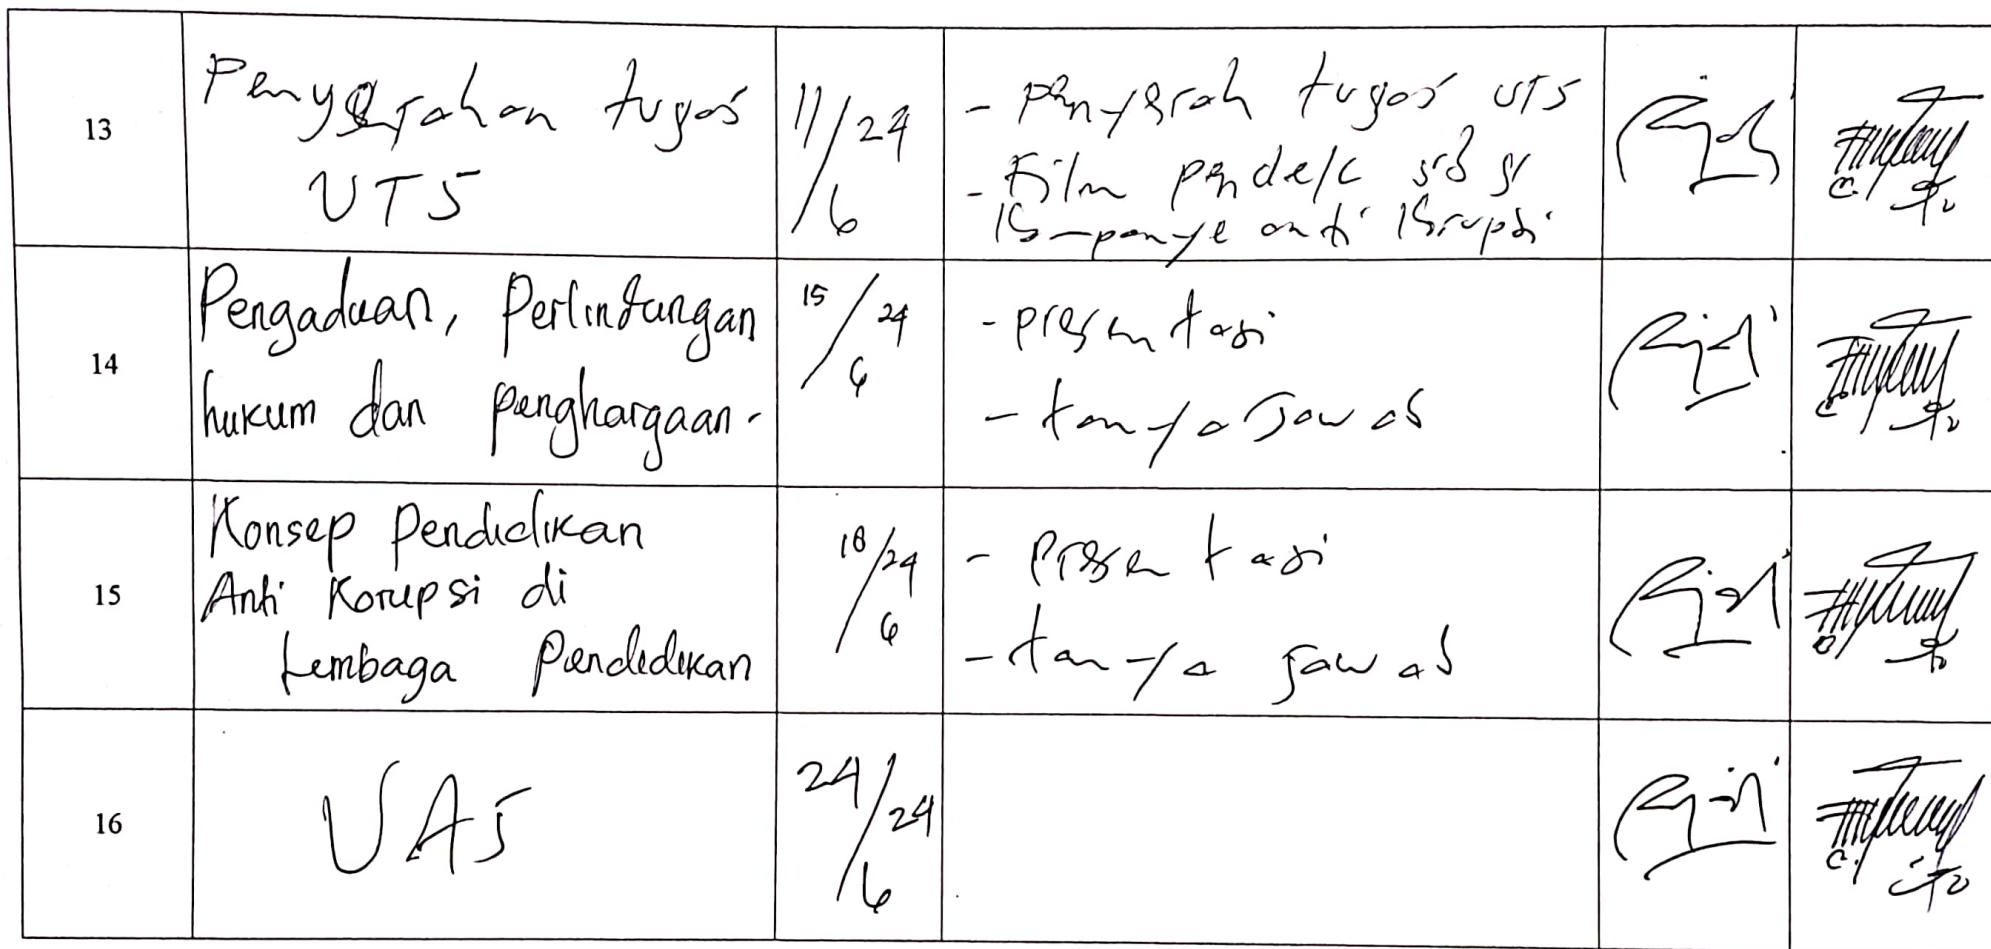 13
Penyerahan tugas
UTS
11/24
/6
- Penyerah tugas UTS
- Film pendek
Kampanye anti Korupsi
14
Pengaduan, Perlindungan
hukum dan penghargaan.
15/24
/6
- presentasi
- tanya Jawab
15
Konsep Pendidikan
Anti Korupsi di
Lembaga Pendidikan
18/24
/6
- Presentasi
- tanya jawab
16
UAS
24/24
/6